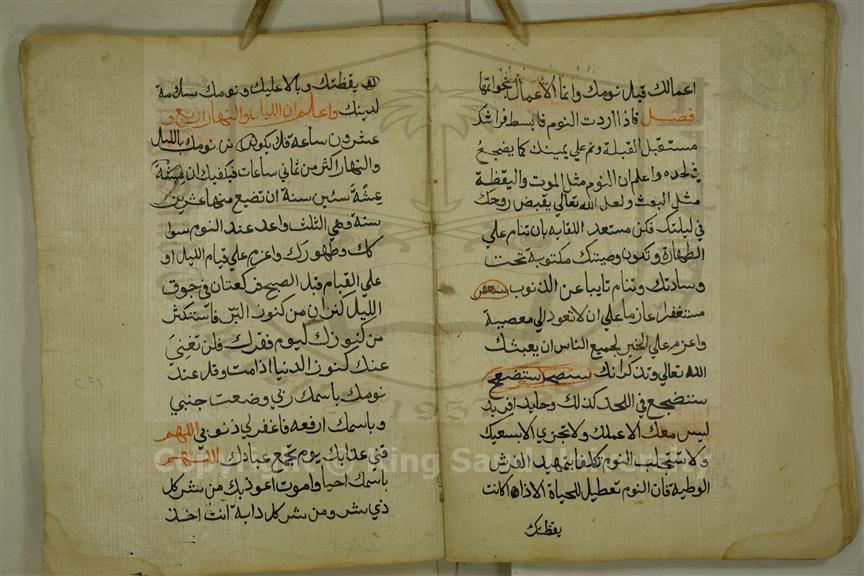 اعمالك قبل نومك وانما الاعمال بخواتمها
فصل فاذا اردت النوم فابسط فراشك
مستقبل القبلة ونم علي يمينك كما يضجع
في لحده واعلم ان النوم مثل الموت واليقظة
مثل البعث ولعل الله تعالي يقبض روحك
في ليلتك فكن مستعد اللقايه بان تنام علي
الطهارة وتكون وصيتك مكتوبة تحت
وسادتك وتنام تايبا عن الذنوب
مستغفرا عازما علي ان لا تعود الي معصية
واعزم علي الخير لجميع الناس ان يعبثك
الله تعالي وتذكر انك
ستضجع في اللحد كذلك وحيد افريد
ليس معك الا عملك ولا تجزي الا بسعيك
ولا تستجلب النوم تكلفا بتمهيد الفرش
الوطية فان النوم تعطيل للحياة الا اذا كانت
يقظتك
يقظتك وبالا عليك ونومك سلامة
لدينك واعلم ان الليل والنهار اربع و
عشرون ساعة فلا يكون نومك بالليل
والنهار اكثر من ثماني ساعات فيكفيك ان عشة
عشة ستين سنة ان تضيع منها عشرين
سنة وهي الثلث واعد عند النوم سوا
كك وطهورك واعزم علي قيام الليل او
علي القيام قبل الصبح فركعتان في جوف
الليل كنزان من كنوز البر فاستكثر
من كنوزك ليوم فقرك فلن تغني
عنك كنوز الدنيا اذا مت وقل عند
نومك باسمك ربي وضعت جنبي
وباسمك ارفعه فاغفر لي ذنوبي اللهم
قني عذابك يوم تجمع عبادك اللهم
باسمك احيا واموت اعوذ بك من شر كل
ذي شر ومن شر كل دابة انت اخذ
Copyright © King Saud University
1957